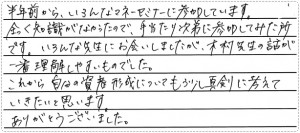 半年前から、いろんなマネーセミナーに参加しています。
全く知識がなかったので、手当たり次第に参加してみた所
です。いろんな先生にお会いしましたが、木村先生の話が
一番理解しやすいものでした。
これから自分の資産形成についてもう少し真剣に考えて
いきたいと思います。
ありがとうございました。